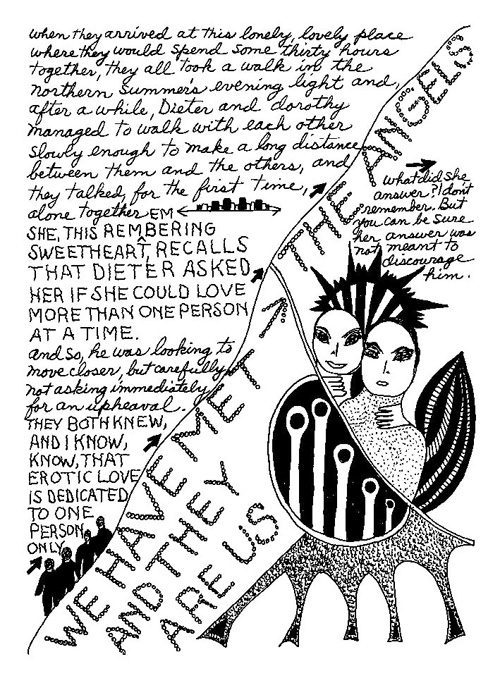 when they arrived at this lonely, lovely place
where they would spend some thirty hours
together, they all took a walk in the
northern summer's evening light and,
after a while, Dieter and dorothy
managed to walk with each other
slowly enough to make a long distance
between them and the others, and
they talked, for the first time,
alone together
EM
SHE, THIS REMBERING
SWEETHEART, RECALLS
THAT DIETER ASKED
HER IF SHE COULD LOVE
MORE THAN ONE PERSON
AT A TIME.
and so, he was looking to
move closer, but carefully,
not asking immediately
for an upheaval.
THEY BOTH KNEW,
AND I KNOW,
KNOW, THAT
EROTIC LOVE
IS DEDICATED
TO ONE
PERSON
ONLY
what did she
answer? I don't
remember. But
you can be sure
her answer was
not meant to
discourage
him.
WE HAVE MET THE ANGELS
AND THEY
ARE US